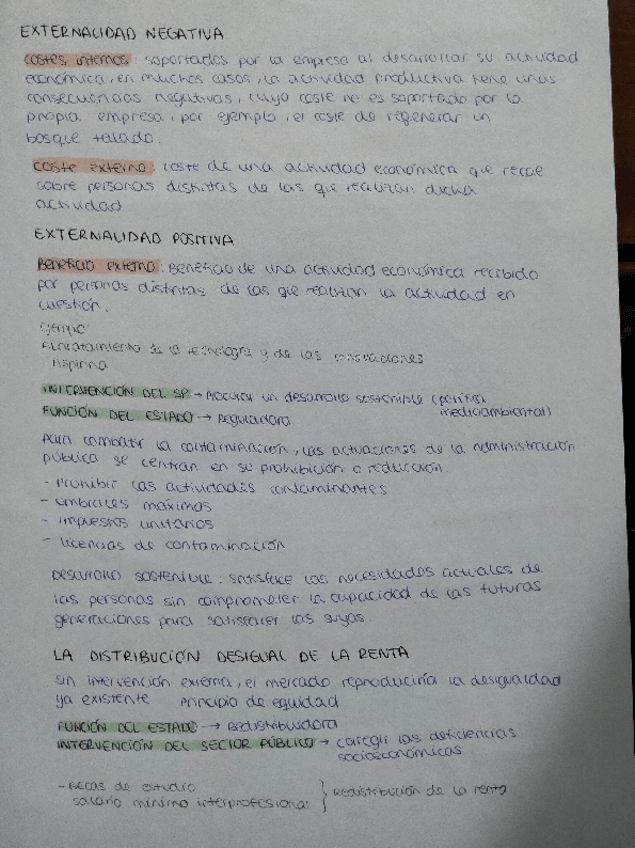 EXTERNALIDAD NEGATIVA
costes internos: soportados por la empresa al desarrollar su actividad
económica, en muchos casos, la actividad productiva tiene unas
consecuencias negativas, cuyo coste no es soportado por la
propia empresa, por ejemplo, el coste de regenerar un
bosque talado.
coste externo: coste de una actividad económica que recae
sobre personas distintas de las que realizan dicha
actividad
EXTERNALIDAD POSITIVA
Beneficio externo: Beneficio de una actividad económica recibido
por personas distintas de las que realizan la actividad en
cuestión.
Ejemplo
de la tecnología y de las innovaciones
Aspirina
INTERVENCIÓN DEL SP → Procurar un desarrollo sostenible (política
medioambiental)
FUNCIÓN DEL ESTADO → Reguladora
Para combatir la contaminación, las actuaciones de la administración
pública se centran en su prohibición o reducción.
- Prohibir las actividades contaminantes
- umbrales máximos
- impuestos unitarios
- licencias de contaminación
Desarrollo sostenible: satisface las necesidades actuales de
las personas sin comprometer la capacidad de las futuras
generaciones para satisfacer las suyas.
LA DISTRIBUCIÓN DESIGUAL DE LA RENTA
sin intervención externa, el mercado reproduciría la desigualdad
ya existente principio de equidad
FUNCIÓN DEL ESTADO → Redistribuidora
INTERVENCIÓN DEL SECTOR PÚBLICO → corregir las deficiencias
socioeconómicas
- Becas de estudio
salario mínimo interprofesional } Redistribución de la renta